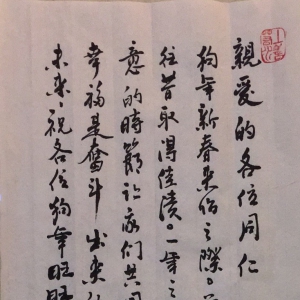 親愛的各位同仁
狗年新春来临之際。
往昔取得佳績。一年之
意的時節让我们共同
幸福是奮斗出来
未来,祝各位狗年旺旺